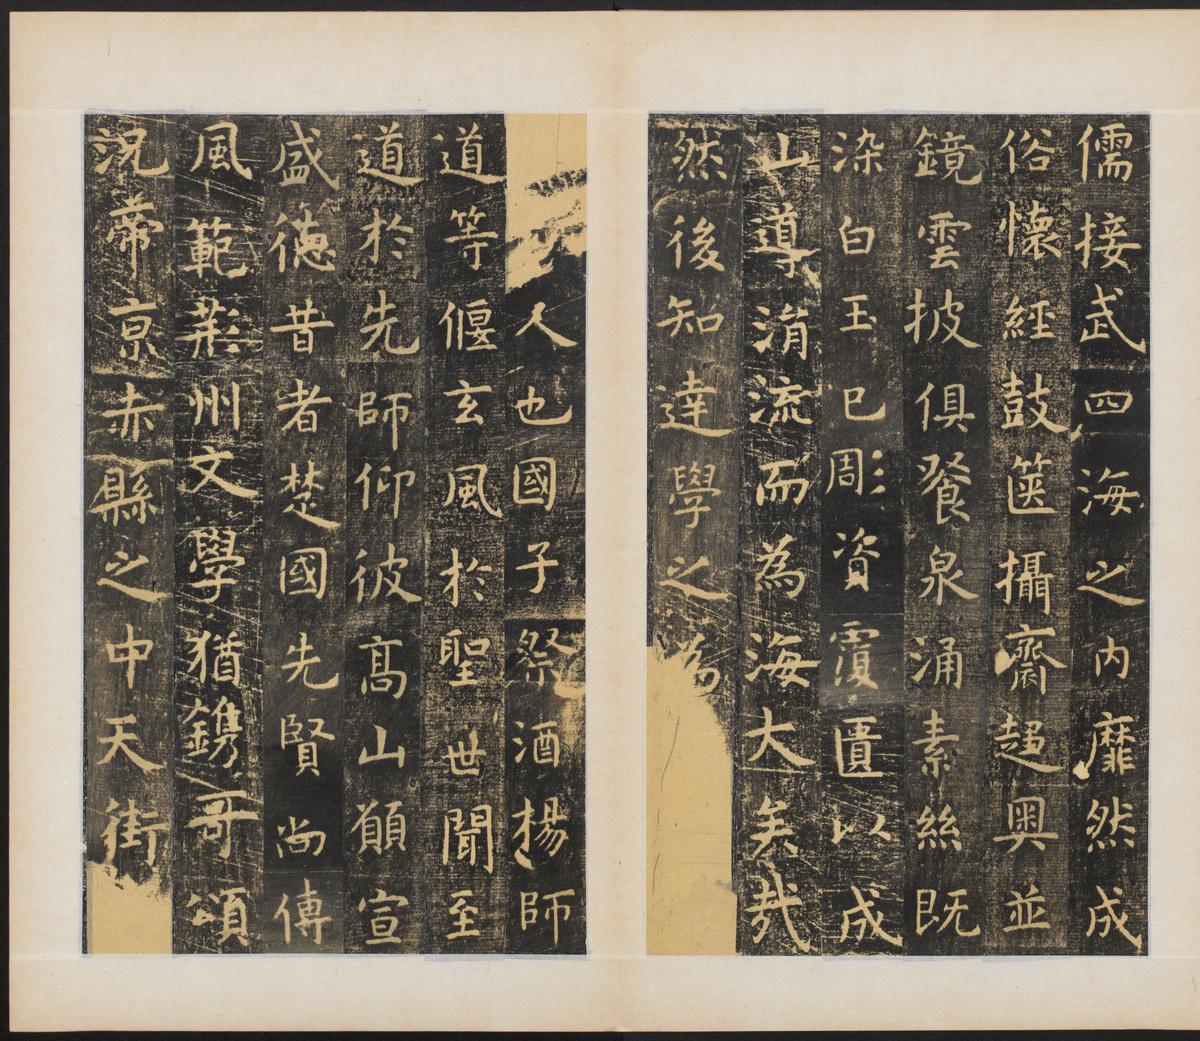 儒接武四海之内靡然成
俗懷經鼓箧攝齋趍奥並
鏡雲披俱飱泉涌素絲既
染白玉已彫資覆匱以成
山導涓流而為海大矣哉
然後知達學之為
人也國子祭酒楊師
道等偃玄風於聖世聞至
道於先師仰彼髙山願宣
盛德昔者楚國先賢尚傳
風範荆州文學猶鐫哥頌
況帝京赤縣之中天街